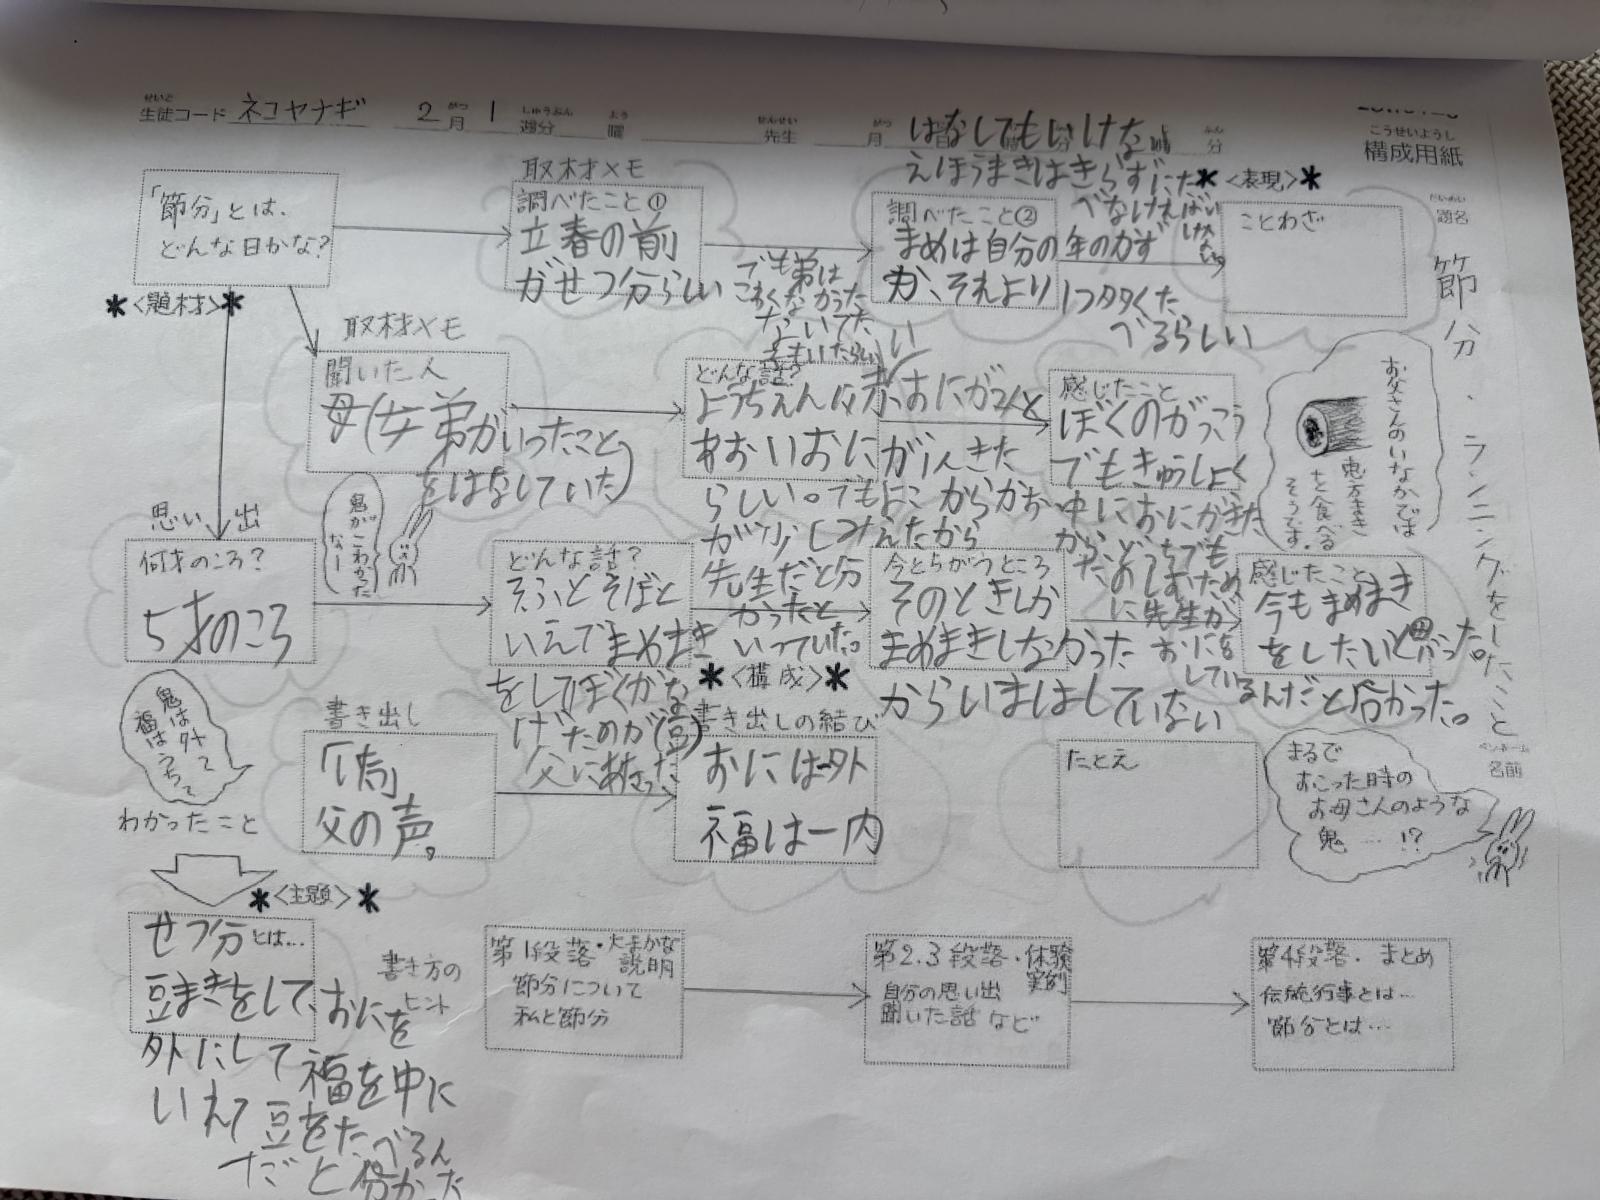 せいと
生徒コード ネコヤナギ 2月 1 週分 曜 先生 月 分
がつ しゅうぶん よう せんせい がつ ふん
こうせいようし
構成用紙
だいめい
題名
節分、ランニングをしたこと
ペンネーム
名前
はなしてもいけな
えほうまきはきらずにた
べなければい
けない
「節分」とは、
どんな日かな?
*<題材>*
取材メモ
調べたこと①
立春の前
がせつ分らしい
調べたこと②
まめは自分の年のかず
か、それより1つ多くた
べるらしい
*<表現>*
ことわざ
取材メモ
聞いた人
母(弟がいったこと
をはなしていた)
どんな話?
ようちえんは赤おにが2人と
あおいおにが1人きた
らしい。でもよこからかお
が少しみえたから
先生だと分
かったと
いっていた。
でも弟は
こわくなかった
ないてた
子もいたらしい
感じたこと
ぼくのがっこう
でもきゅうしょく
中におにがきた
から、どっちでも
たのしむため
に先生が
おにを
している
んだと分かった。
お父さんのいなかでは
恵方まき
を食べる
そうです。
思い出
何才のころ?
5才のころ
鬼が
こわかった
なー
どんな話?
そふとそぼと
いえでまめまき
をしてぼくがな
げたのが(豆)
父にあたった
今とちがうところ
そのときしか
まめまきしなかった
からいまはしていない
感じたこと
今もまめまき
をしたいと思った。
鬼は外で
福はうちで
わかったこと
*<構成>*
書き出し
「痛」
父の声。
書き出しの結び
おには一外
福は一内
たとえ
まるで
おこった時の
お母さんのような
鬼…!?
*<主題>*
せつ分とは…
豆まきをして、おにを
外にして福を中に
いれて豆をたべるん
だと分かった
書き方の
ヒント
第1段落・大まかな
説明
節分について
私と節分
第2.3段落・体験
実例
自分の思い出
聞いた話など
第4段落・まとめ
伝統行事とは…
節分とは…